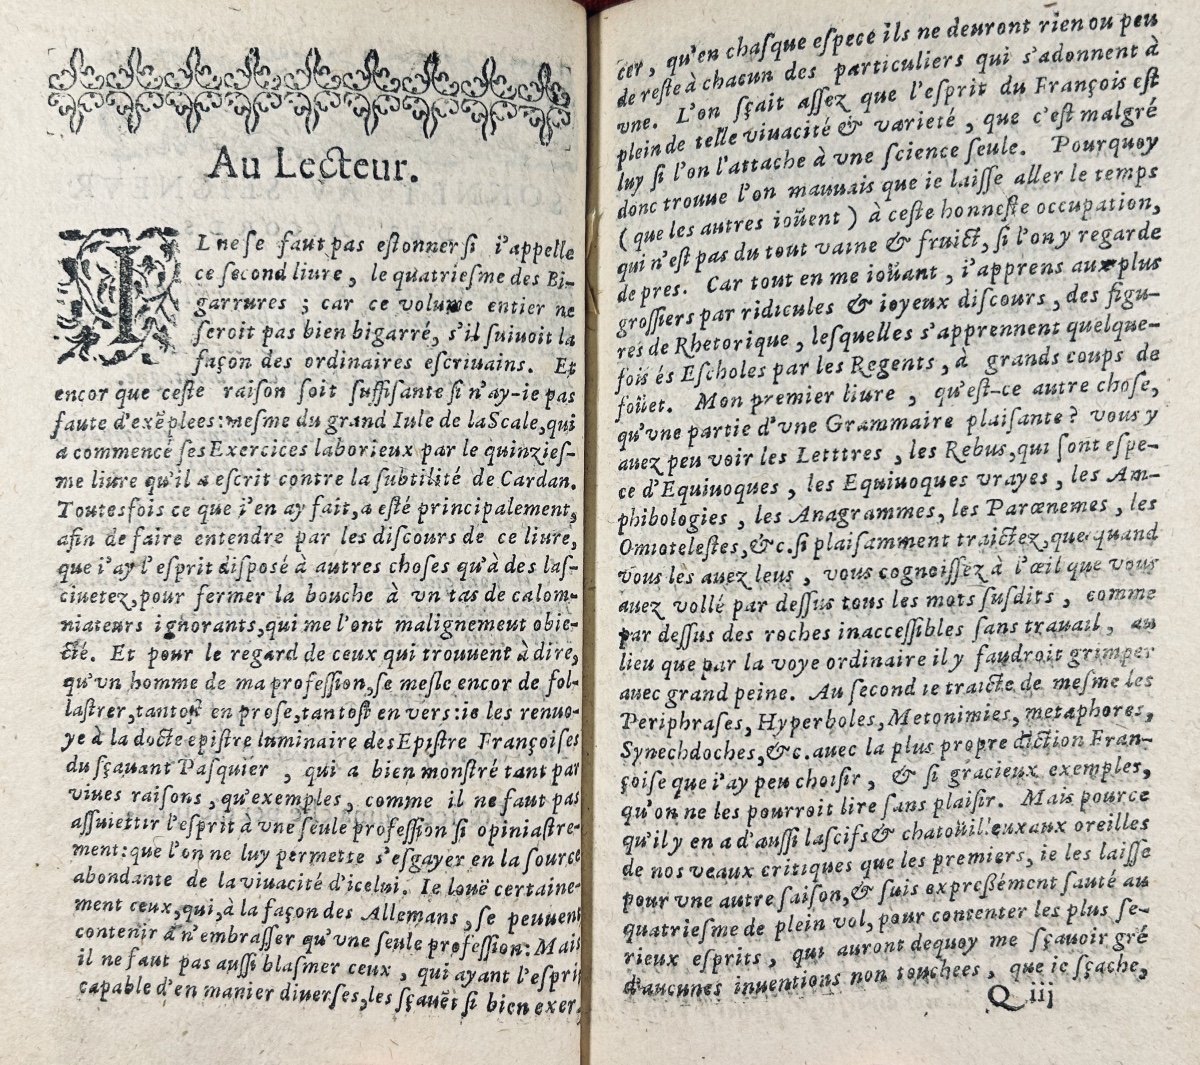 Au Lecteur.
IL ne se faut pas estonner si i'appelle
ce second liure, le quatriesme des Bi-
garrures ; car ce volume entier ne
seroit pas bien bigarré, s'il suiuoit la
façon des ordinaires escriuains. Et
encor que ceste raison soit suffisante si n'ay-ie pas
faute d'exẽplees: mesme du grand Iule de la Scale, qui
a commencé ses Exercices laborieux par le quinzies-
me liure qu'il a escrit contre la subtilité de Cardan.
Toutesfois ce que i'en ay fait, a esté principalement,
afin de faire entendre par les discours de ce liure,
que i'ay l'esprit disposé à autres choses qu'à des las-
ciuetez, pour fermer la bouche à vn tas de calom-
niateurs ignorants, qui me l'ont malignemeut obie-
cté. Et pour le regard de ceux qui trouuent à dire,
qu'vn homme de ma profession, se mesle encor de fol-
lastrer, tantost en prose, tantost en vers: ie les renuo-
ye à la docte epistre luminaire des Epistre Françoises
du sçauant Pasquier , qui a bien monstré tant par
viues raisons, qu'exemples, comme il ne faut pas
assuiettir l'esprit à vne seule profession si opiniastre-
ment: que l'on ne luy permette s'esgayer en la source
abondante de la viuacité d'icelui. Ie louë certaine-
ment ceux, qui, à la façon des Allemans , se peuuent
contenir à n'embrasser qu'vne seule profession: Mais
il ne faut pas aussi blasmer ceux , qui ayant l'esprit
capable d'en manier diuerses, les sçauẽt si bien exer-
cer, qu'en chasque espece ils ne deuront rien ou peu
de reste à chacun des particuliers qui s'adonnent à
vne. L'on sçait assez que l'esprit du François est
plein de telle viuacité & varieté , que c'est malgré
luy si l'on l'attache à vne science seule. Pourquoy
donc trouue l'on mauuais que ie laisse aller le temps
(que les autres ioüent) à ceste honneste occupation,
qui n'est pas du tout vaine & fruict, si l'on y regarde
de pres. Car tout en me ioüant, i'apprens aux plus
grossiers par ridicules & ioyeux discours, des figu-
res de Rhetorique, lesquelles s'apprennent quelque-
fois és Escholes par les Regents, à grands coups de
foüet. Mon premier liure , qu'est-ce autre chose,
qu'vne partie d'vne Grammaire plaisante? vous y
auez peu voir les Letttres , les Rebus, qui sont espe-
ce d'Equiuoques , les Equiuoques vrayes, les Am-
phibologies , les Anagrammes, les Parœnemes , les
Omiotelestes, &c. si plaisamment traictez, que quand
vous les auez leus , vous cognoissez à l'œil que vous
auez vollé par dessus tous les mots susdits , comme
par dessus des roches inaccessibles sans trauail, au
lieu que par la voye ordinaire il y faudroit grimper
auec grand peine. Au second ie traicte de mesme les
Periphrases, Hyperboles, Metonimies, metaphores,
Synechdoches, &c. auec la plus propre diction Fran-
çoise que i'ay peu choisir , & si gracieux exemples,
qu'on ne les pourroit lire sans plaisir. Mais pource
qu'il y en a d'aussi lascifs & chatoüilleux aux oreilles
de nos veaux critiques que les premiers, ie les laisse
pour vne autre saison, & suis expressément sauté au
quatriesme de plein vol, pour contenter les plus se-
rieux esprits, qui auront dequoy me sçauoir gré
d'aucunes inuentions non touchees, que ie sçache,
Q iij